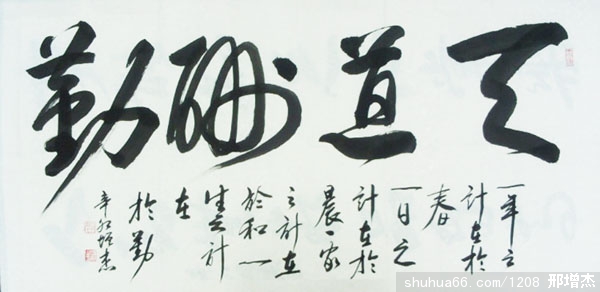 天道酬勤
一年之
计在於
春
一日之
计在於
晨一家
之计在
於和一
生之计
在
於勤
辛卯增杰
shuhua66.com/1208 邢增杰